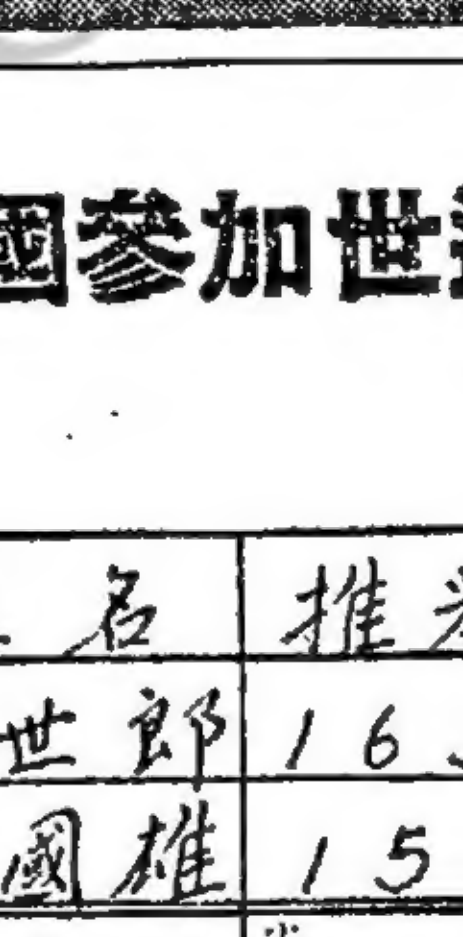 國參加世
名 推
世郎 16
國雄 15